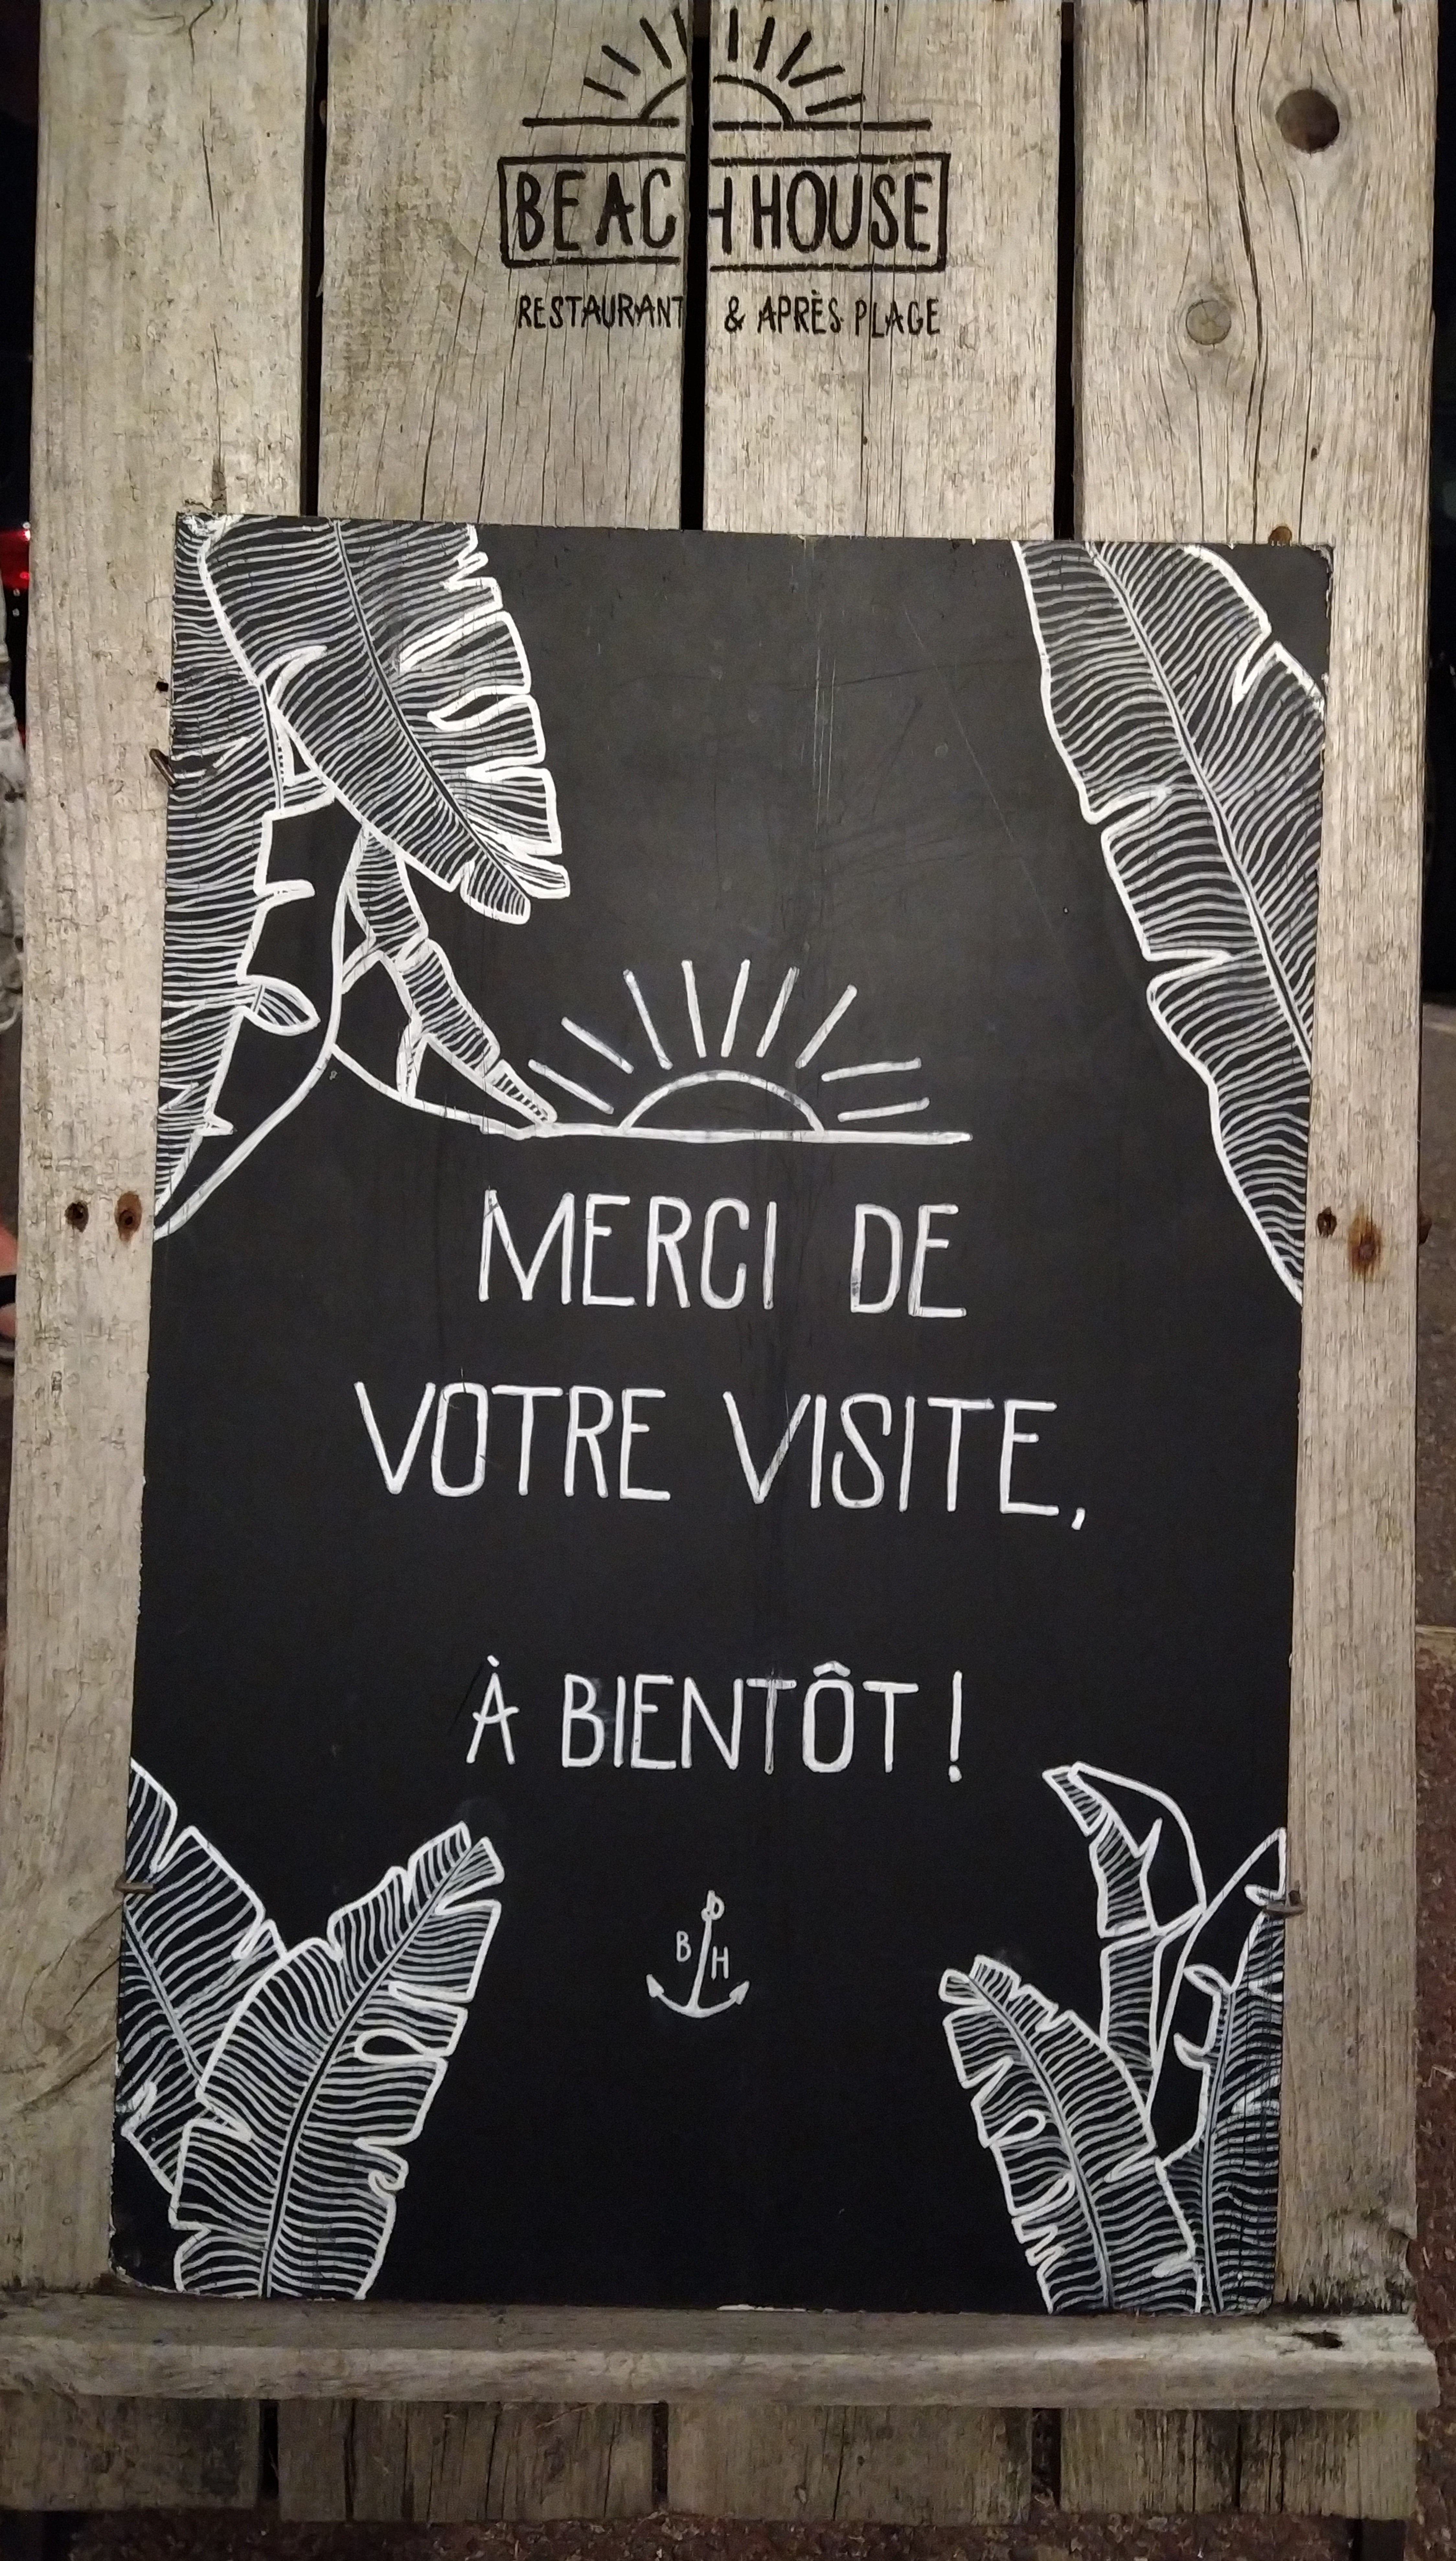 BEACH HOUSE
RESTAURANT & APRÈS PLAGE
MERCI DE
VOTRE VISITE,
À BIENTÔT !
B H